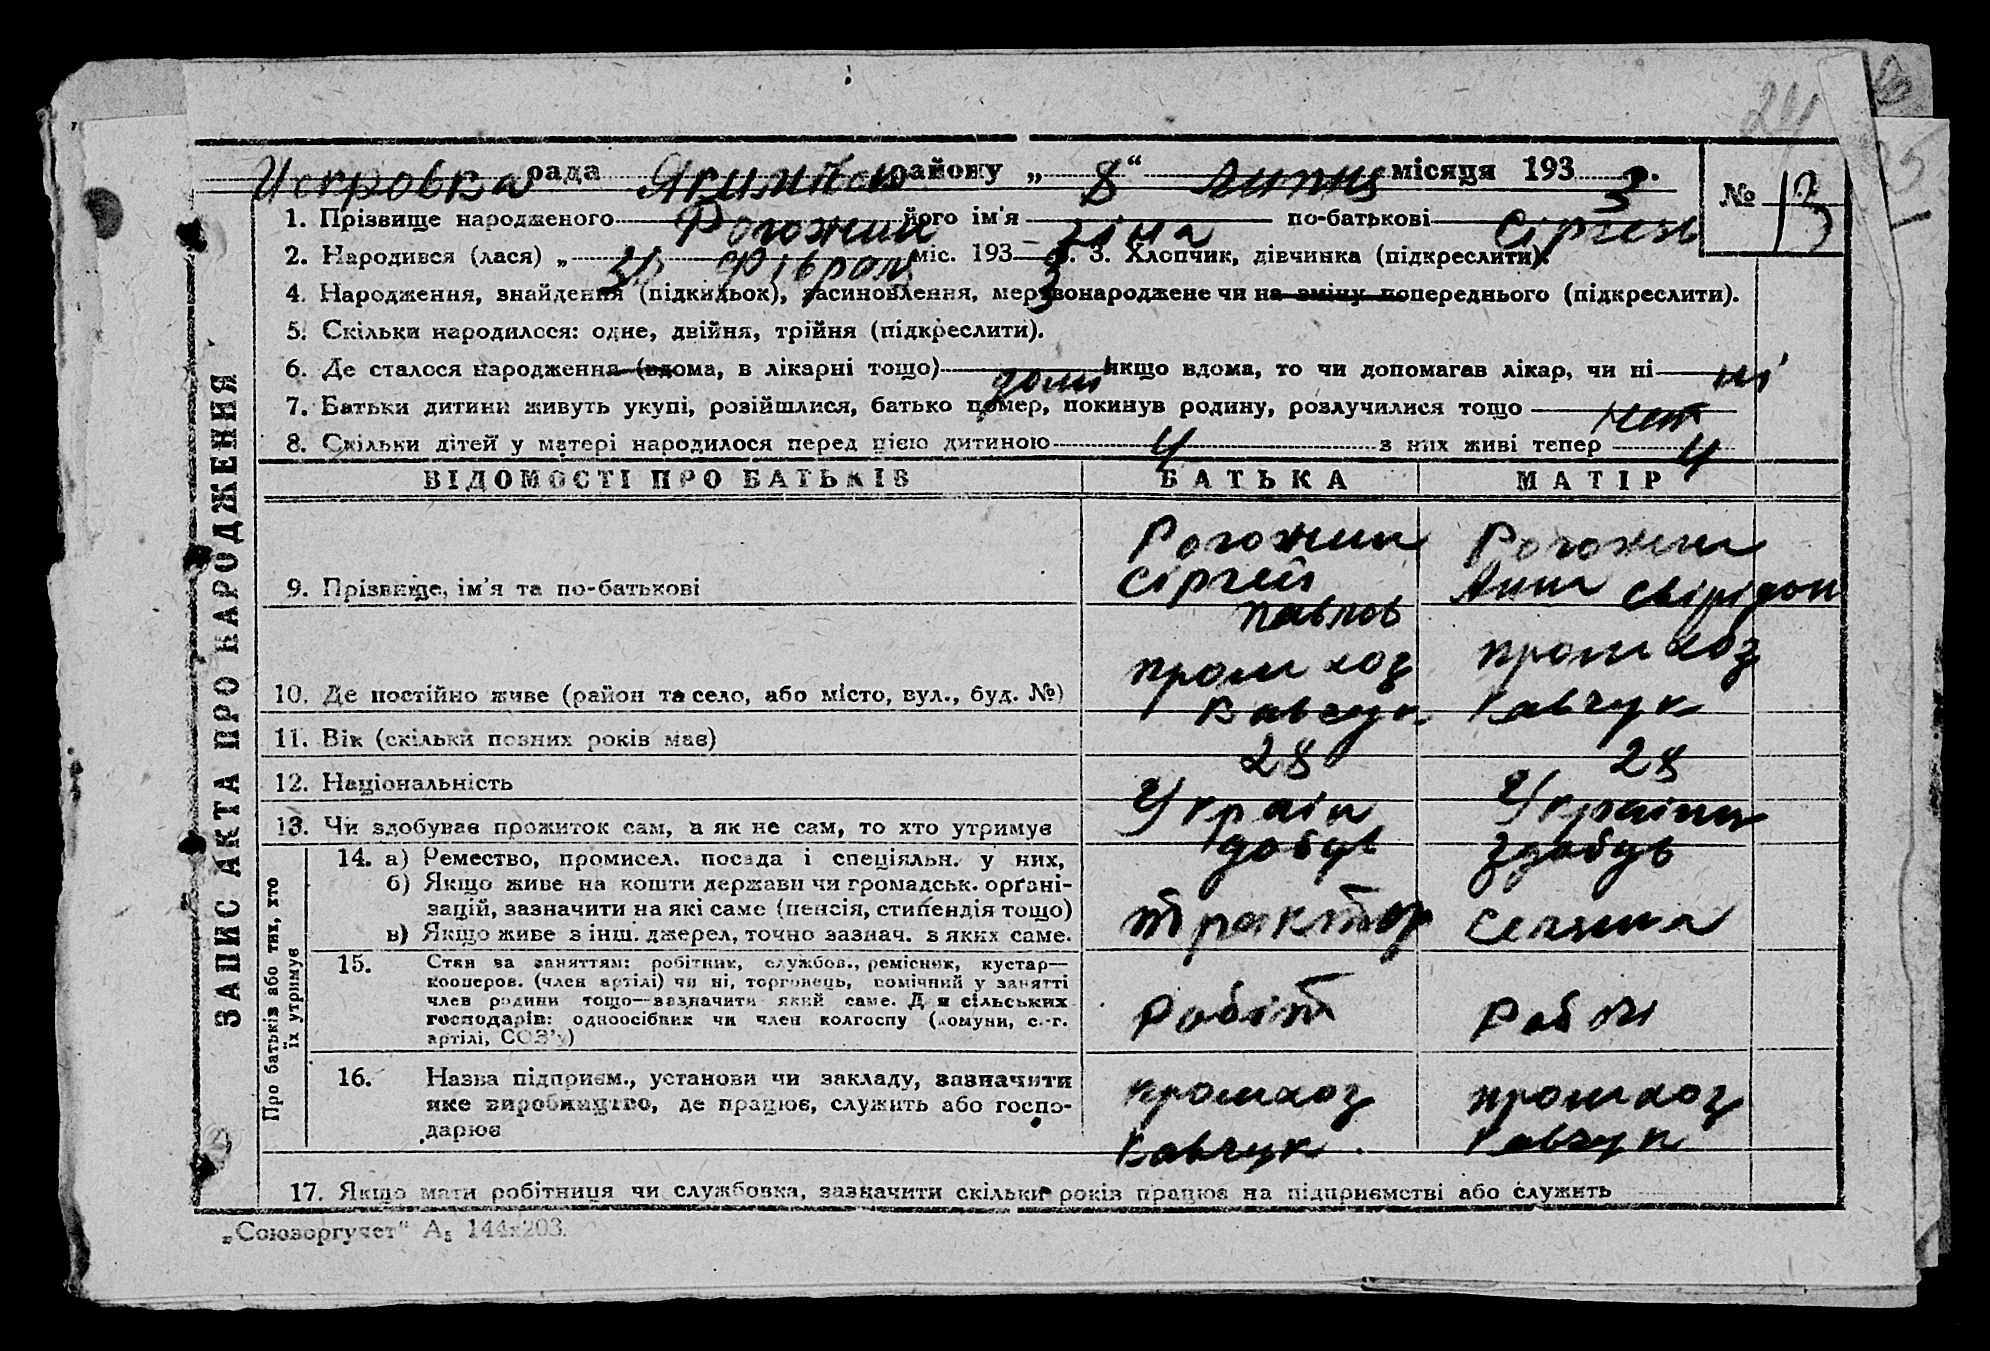 24
рада району „ 8 “ липня місяця 193 3 р.
№ 13
1. Прізвище народженого Рогожин його ім'я Зіна по-батькові Сіргеев
2. Народився (лася) „ міс. 193 3 р. 3. Хлопчик, дівчинка (підкреслити).
4. Народження, знайдення (підкидьок), засиновлення, мертвонароджене чи на зміну попереднього (підкреслити).
5. Скільки народилося: одне, двійня, трійня (підкреслити).
6. Де сталося народження (вдома, в лікарні тощо) дома якщо вдома, то чи допомагав лікар, чи ні ні
7. Батьки дитини живуть укупі, розійшлися, батько помер, покинув родину, розлучилися тощо нет
8. Скільки дітей у матері народилося перед цією дитиною 4 з них живі тепер 4
ВІДОМОСТІ ПРО БАТЬКІВ БАТЬКА МАТІР
9. Прізвище, ім'я та по-батькові Рогожин Сіргей Павлов Рогожин Анна Свірідон
10. Де постійно живе (район та село, або місто, вул., буд. №) промхоз Кавчук промхоз Кавчук
11. Вік (скільки повних років має) 28 28
12. Національність Украін Украінка
13. Чи здобував прожиток сам, а як не сам, то хто утримує добув здобув
14. а) Ремество, промисел, посада і спеціяльн. у них,
б) Якщо живе на кошти держави чи громадськ. органі-
зацій, зазначити на які саме (пенсія, стипендія тощо) трактор селянка
в) Якщо живе з інш. джерел, точно зазнач. з яких саме.
15. Стан за заняттям: робітник, службов., ремісник, кустар—
кооперов. (член артілі) чи ні, торговець, помічний у занятті
член родини тощо—зазначити який саме. Для сільських
господарів: одноосібник чи член колгоспу (комуни, с.-г.
артілі, СОЗ'у) Робіт Робіт
16. Назва підприєм., установи чи закладу, зазначити
яке виробництво, де працює, служить або госпо-
дарює промхоз Кавчук промхоз Кавчук
17. Якщо мати робітниця чи службовка, зазначити скільки років працює на підприємстві або служить
ЗАПИС АКТА ПРО НАРОДЖЕННЯ
Про батьків або тих, хто
їх утримує
„Союзоргучет“ А5 144х203.